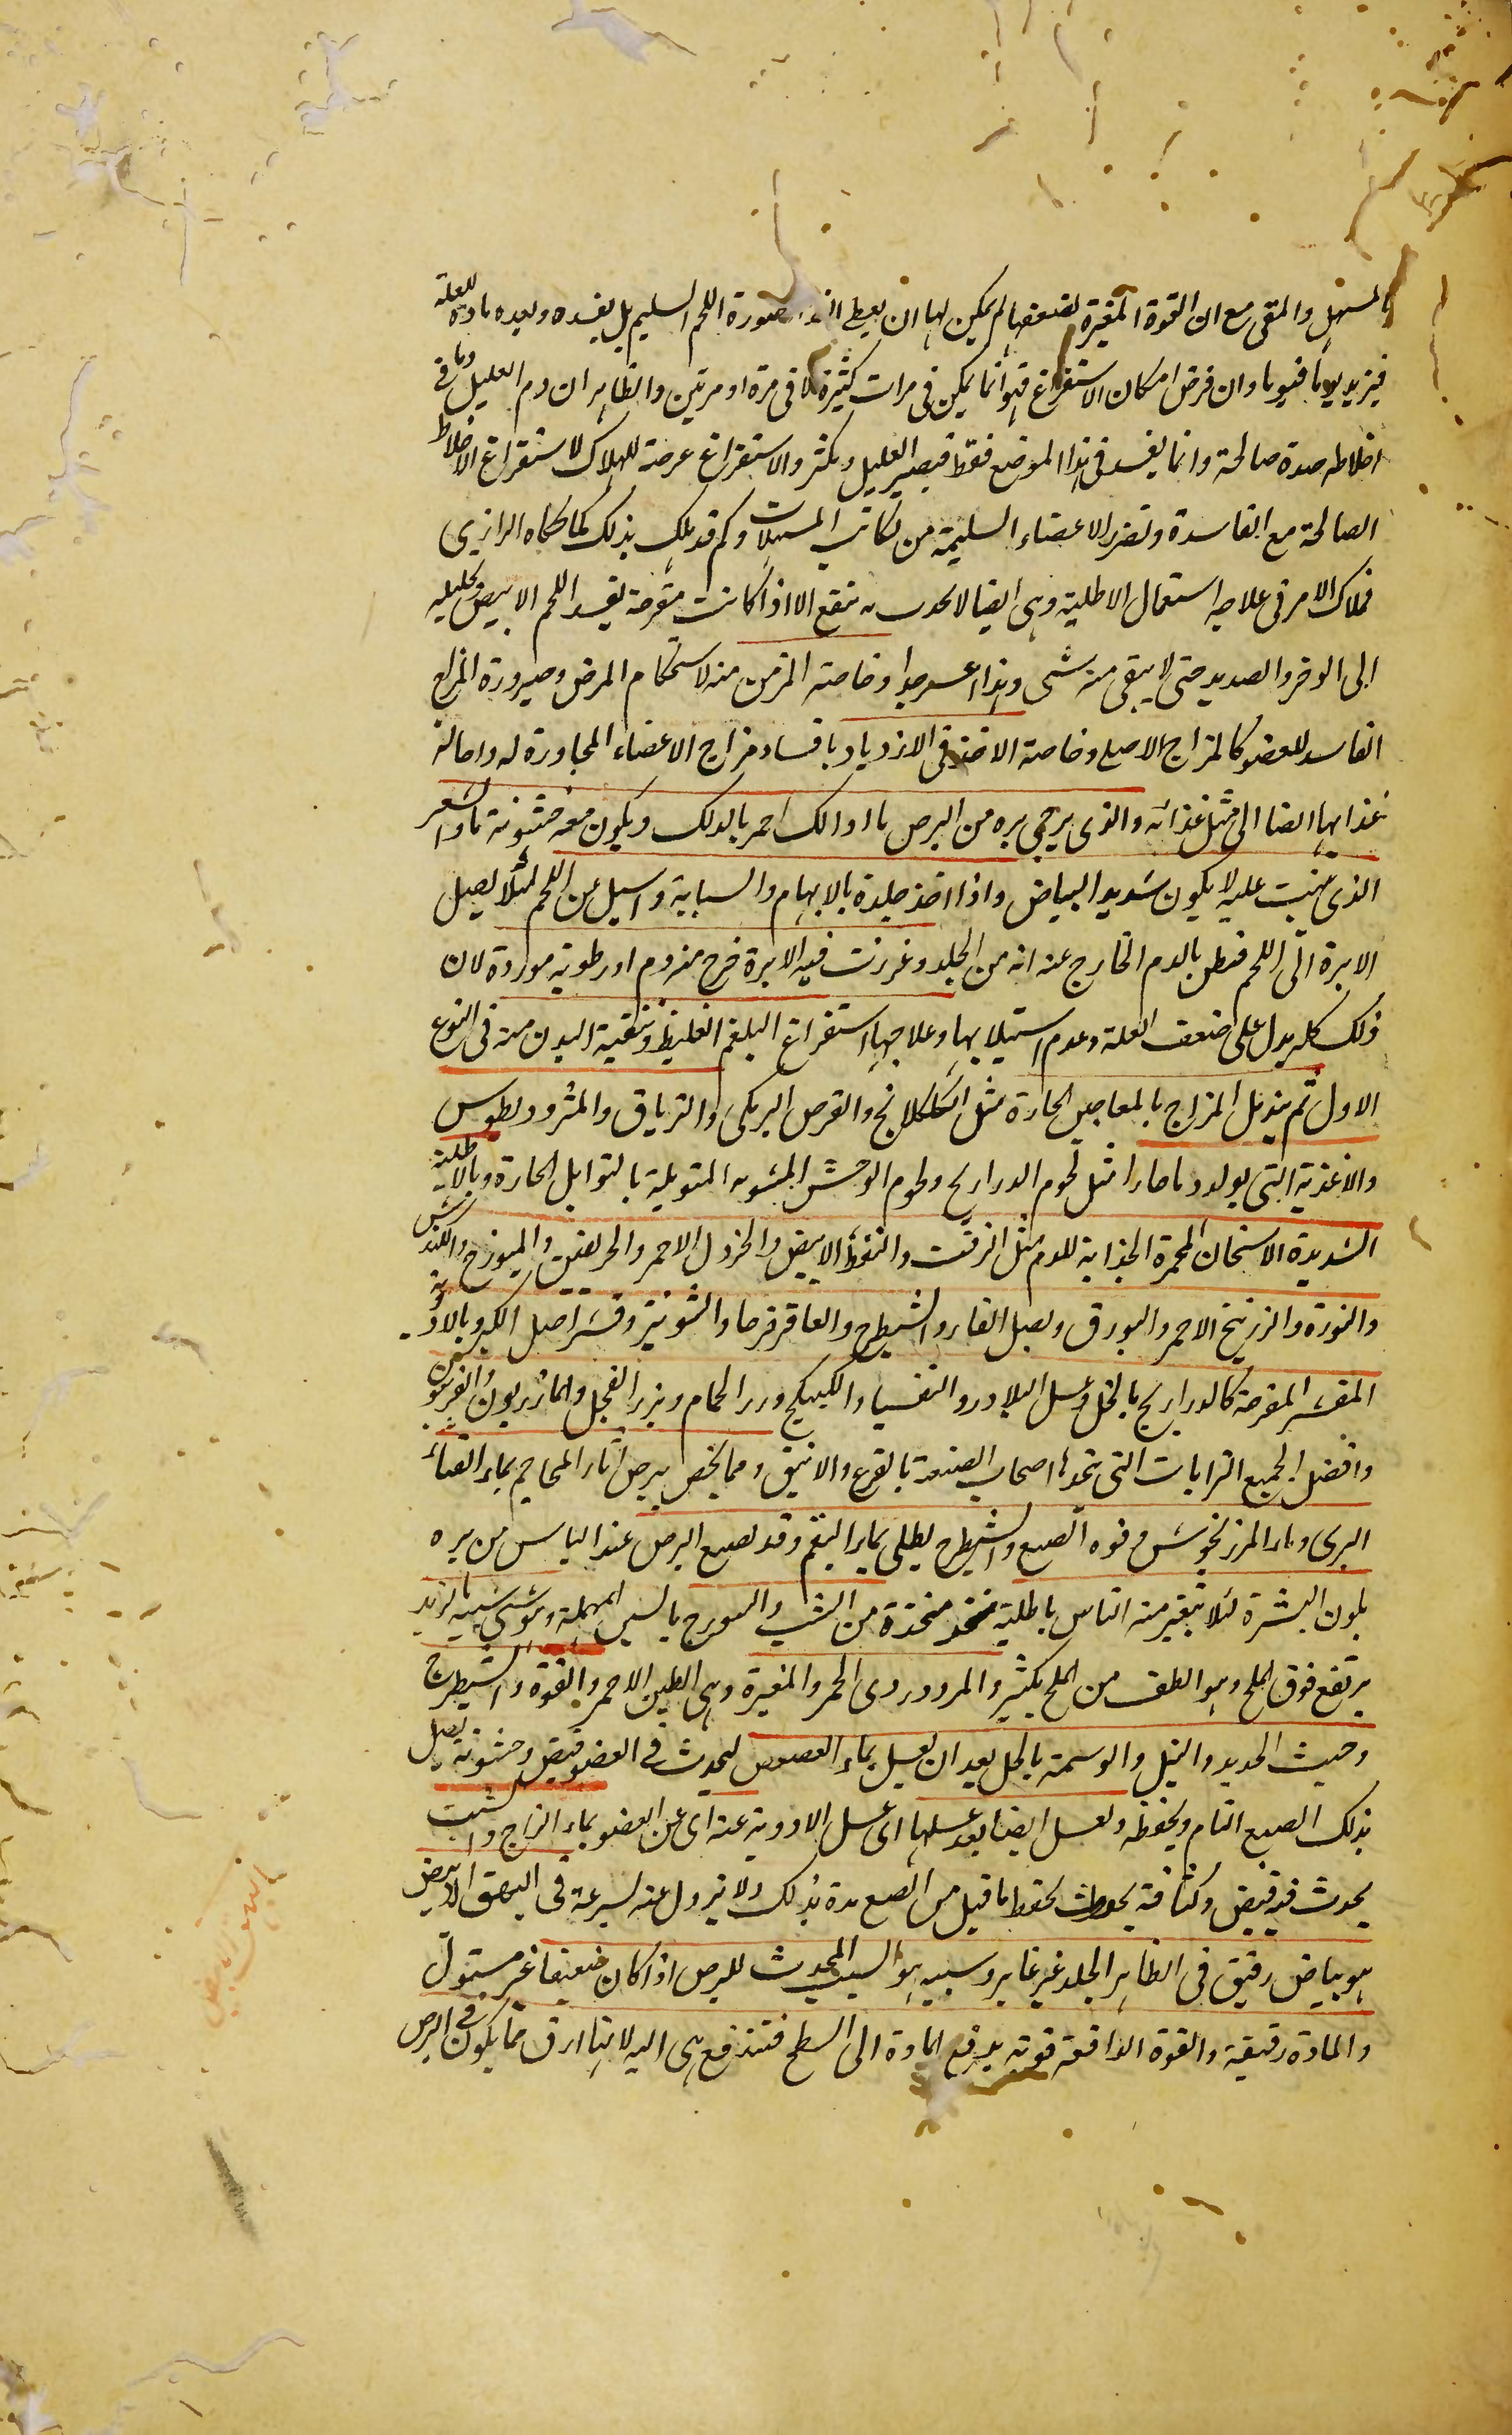 بالمسهل والمقى مع ان القوة المغيرة لضعفها لم يمكن لها ان يعطى الغذاء صورة اللحم السليم بل يفسده ويعده مادة للعلة
فيزيد يوما فيوما وان فرض امكان الاستفراغ فهو انما يمكن فى مرات كثيرة لا فى مرة او مرتين والظاهر ان دم العليل وباقى
اخلاطه صدة صالحة وانما يفسد فى هذا الموضع فقط فيصير العليل وبكثر والاستفراغ عرضة للهلاك لاستفراغ الاخلاط
الصالحة مع الفاسدة وتضرر الاعضاء السليمة من نكاتب المسهلات وكم قد هلك بذلك كما حكاه الرازى
فملاك الامر فى علاجه استعمال الاطلية وهى ايضا لا تنفع الا اذا كانت مقرحة تفسد اللحم الابيض وتحليله
الى الوضر والصديد حتى لا يبقى منه شى وهذا عسر جدا وخاصة المزمن منه لاستحكام المرض وصيرورة المزاج
الفاسد للعضو كالمزاج الاصلى وخاصة الاخذ فى الازدياد بافساد مزاج الاعضاء المجاورة له واحالة
غذايها ايضا الى مثل غذائه والذى يرجى برءه من البرص ما اذا دلك احمر بالدلك ويكون معه خشونة ما والشعر
الذى ينبت عليه لا يكون شديد البياض واذا اخذ جلده بالابهام والسبابة واسيل عن اللحم لئلا يصل
الابرة الى اللحم فيظن بالدم الخارج عنه انه من الجلد وغرزت فيه الابرة خرج منه دم او رطوبة موردة لان
ذلك كله يدل على ضعف العلة وعدم استيلايها وعلاجها استفراغ البلغم الغليظ وتنقية البدن منه فى النوع
الاول ثم تبديل المزاج بالمعاجين الحارة مثل الكلكلانج والقرص البرمكى والترياق والمثروديطوس
والاغذية التى يولد دما حارا مثل لحوم الدراريج ولحوم الوحش المشويه المتوبلة بالتوابل الحارة وبالاطلية
الشديدة الاسخان المحمرة الجذابة للدم مثل الزفت والنفط الابيض والخردل الاحمر والخربقين والميوزج والكندش
والنورة والزرنيخ الاحمر والبورق وبصل الفار والشيطرج والعاقرقرحا والشونيز وقشر اصل الكبر وبالادوية
المقشر المقرحة كالدراريح بالخل وعسل البلادر والتفسيا والكبيكج وزرق الحمام وبزر الفجل والمازريون والفربيون
وافضل الجميع الترابات التى يتخذها اصحاب الصنعة بالقرع والانبيق ومما يخص ببرص اثار المحاجم بماء القثاء
البرى وماء المرزنجوش وفوه الصبغ والشيطرج يطلى بماء البقم وقد يصبغ البرص عند الياس من برءه
بلون البشرة لئلا يتغير منه الناس باطلية متخذة من الشب والسورج بالسين المهملة وهو شى شبيه بالزبد
يرتفع فوق الملح وهو الطف من الملح بكثير والمر ودردى الخمر والمغرة وهى الطين الاحمر والفوة والشيطرج
وخبث الحديد والنيل والوسمة بالخل بعد ان يغسل بماء العفص ليحدث فى العضو قبض وخشونة يصل
بذلك الصبغ التام ويحفظه ويغسل ايضا بعد غسلها اى غسل الادوية عنه اى عن العضو بماء الزاج والشب
يحدث فيه قبض وكثافة يحفظ ما قبل من الصبغ مدة بذلك ولا يزول عنه بسرعة فى البهق الابيض
هو بياض رقيق فى الظاهر الجلد غير غاير وسببه هو السبب المحدث للبرص اذا كان ضعيفا غير مستول
والمادة رقيقة والقوة الدافعة قوية يدفع المادة الى السطح فتندفع هى اليه لانها ارق مما يكون فى البرص
البهق الابيض